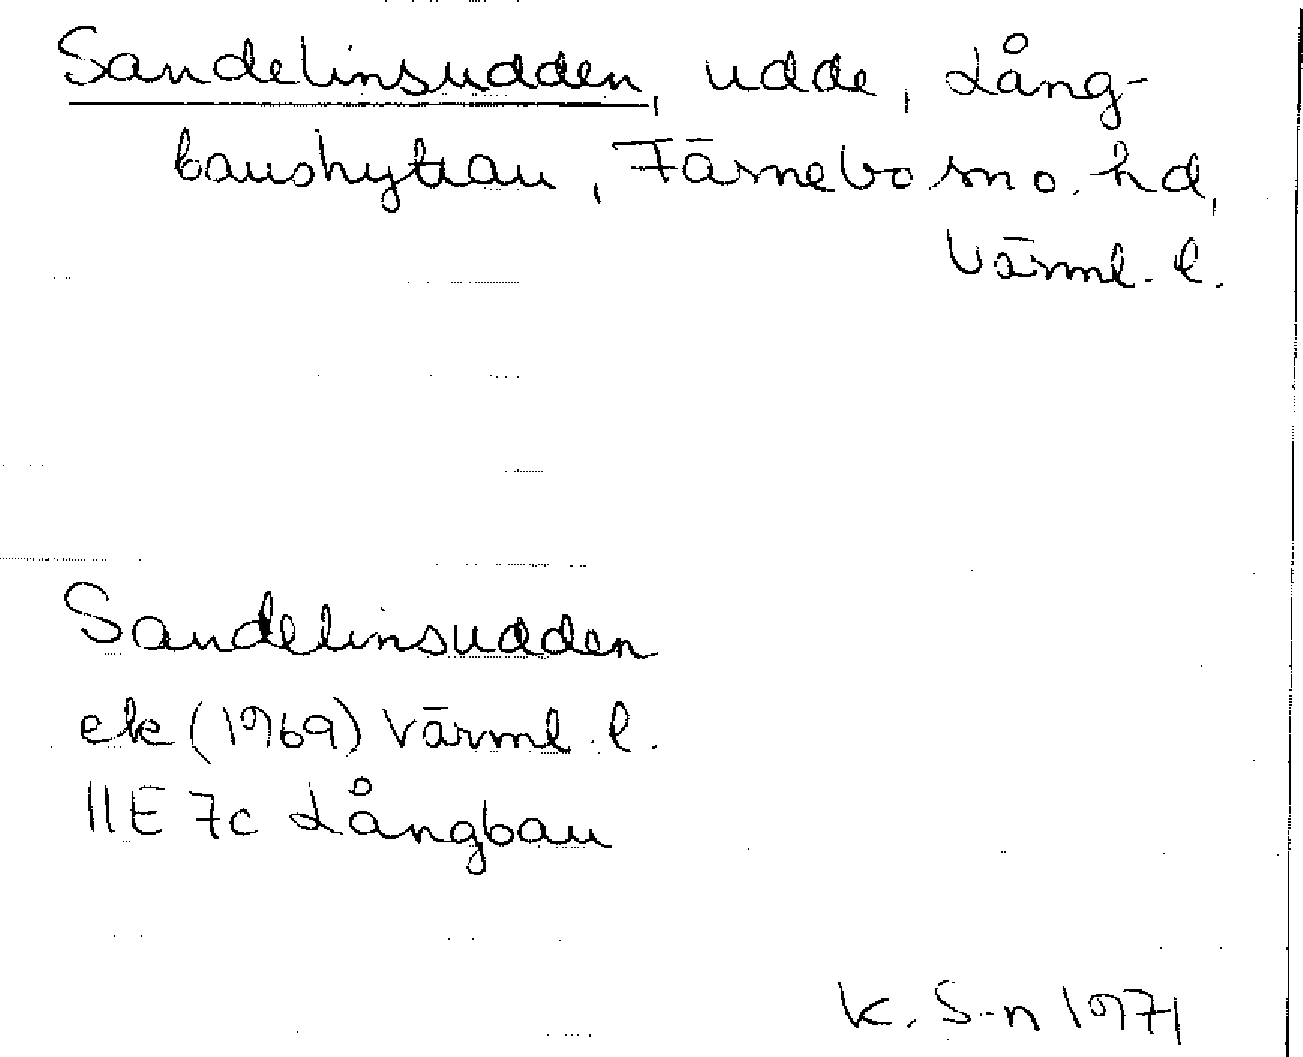 Sandelinsudden, udde, Lång-
banshyttan, Färnebo sn o. hd,
Värml. l.
Sandelinsudden
ek (1969) Värml. l.
11E 7c Långban
K. S-n 1971